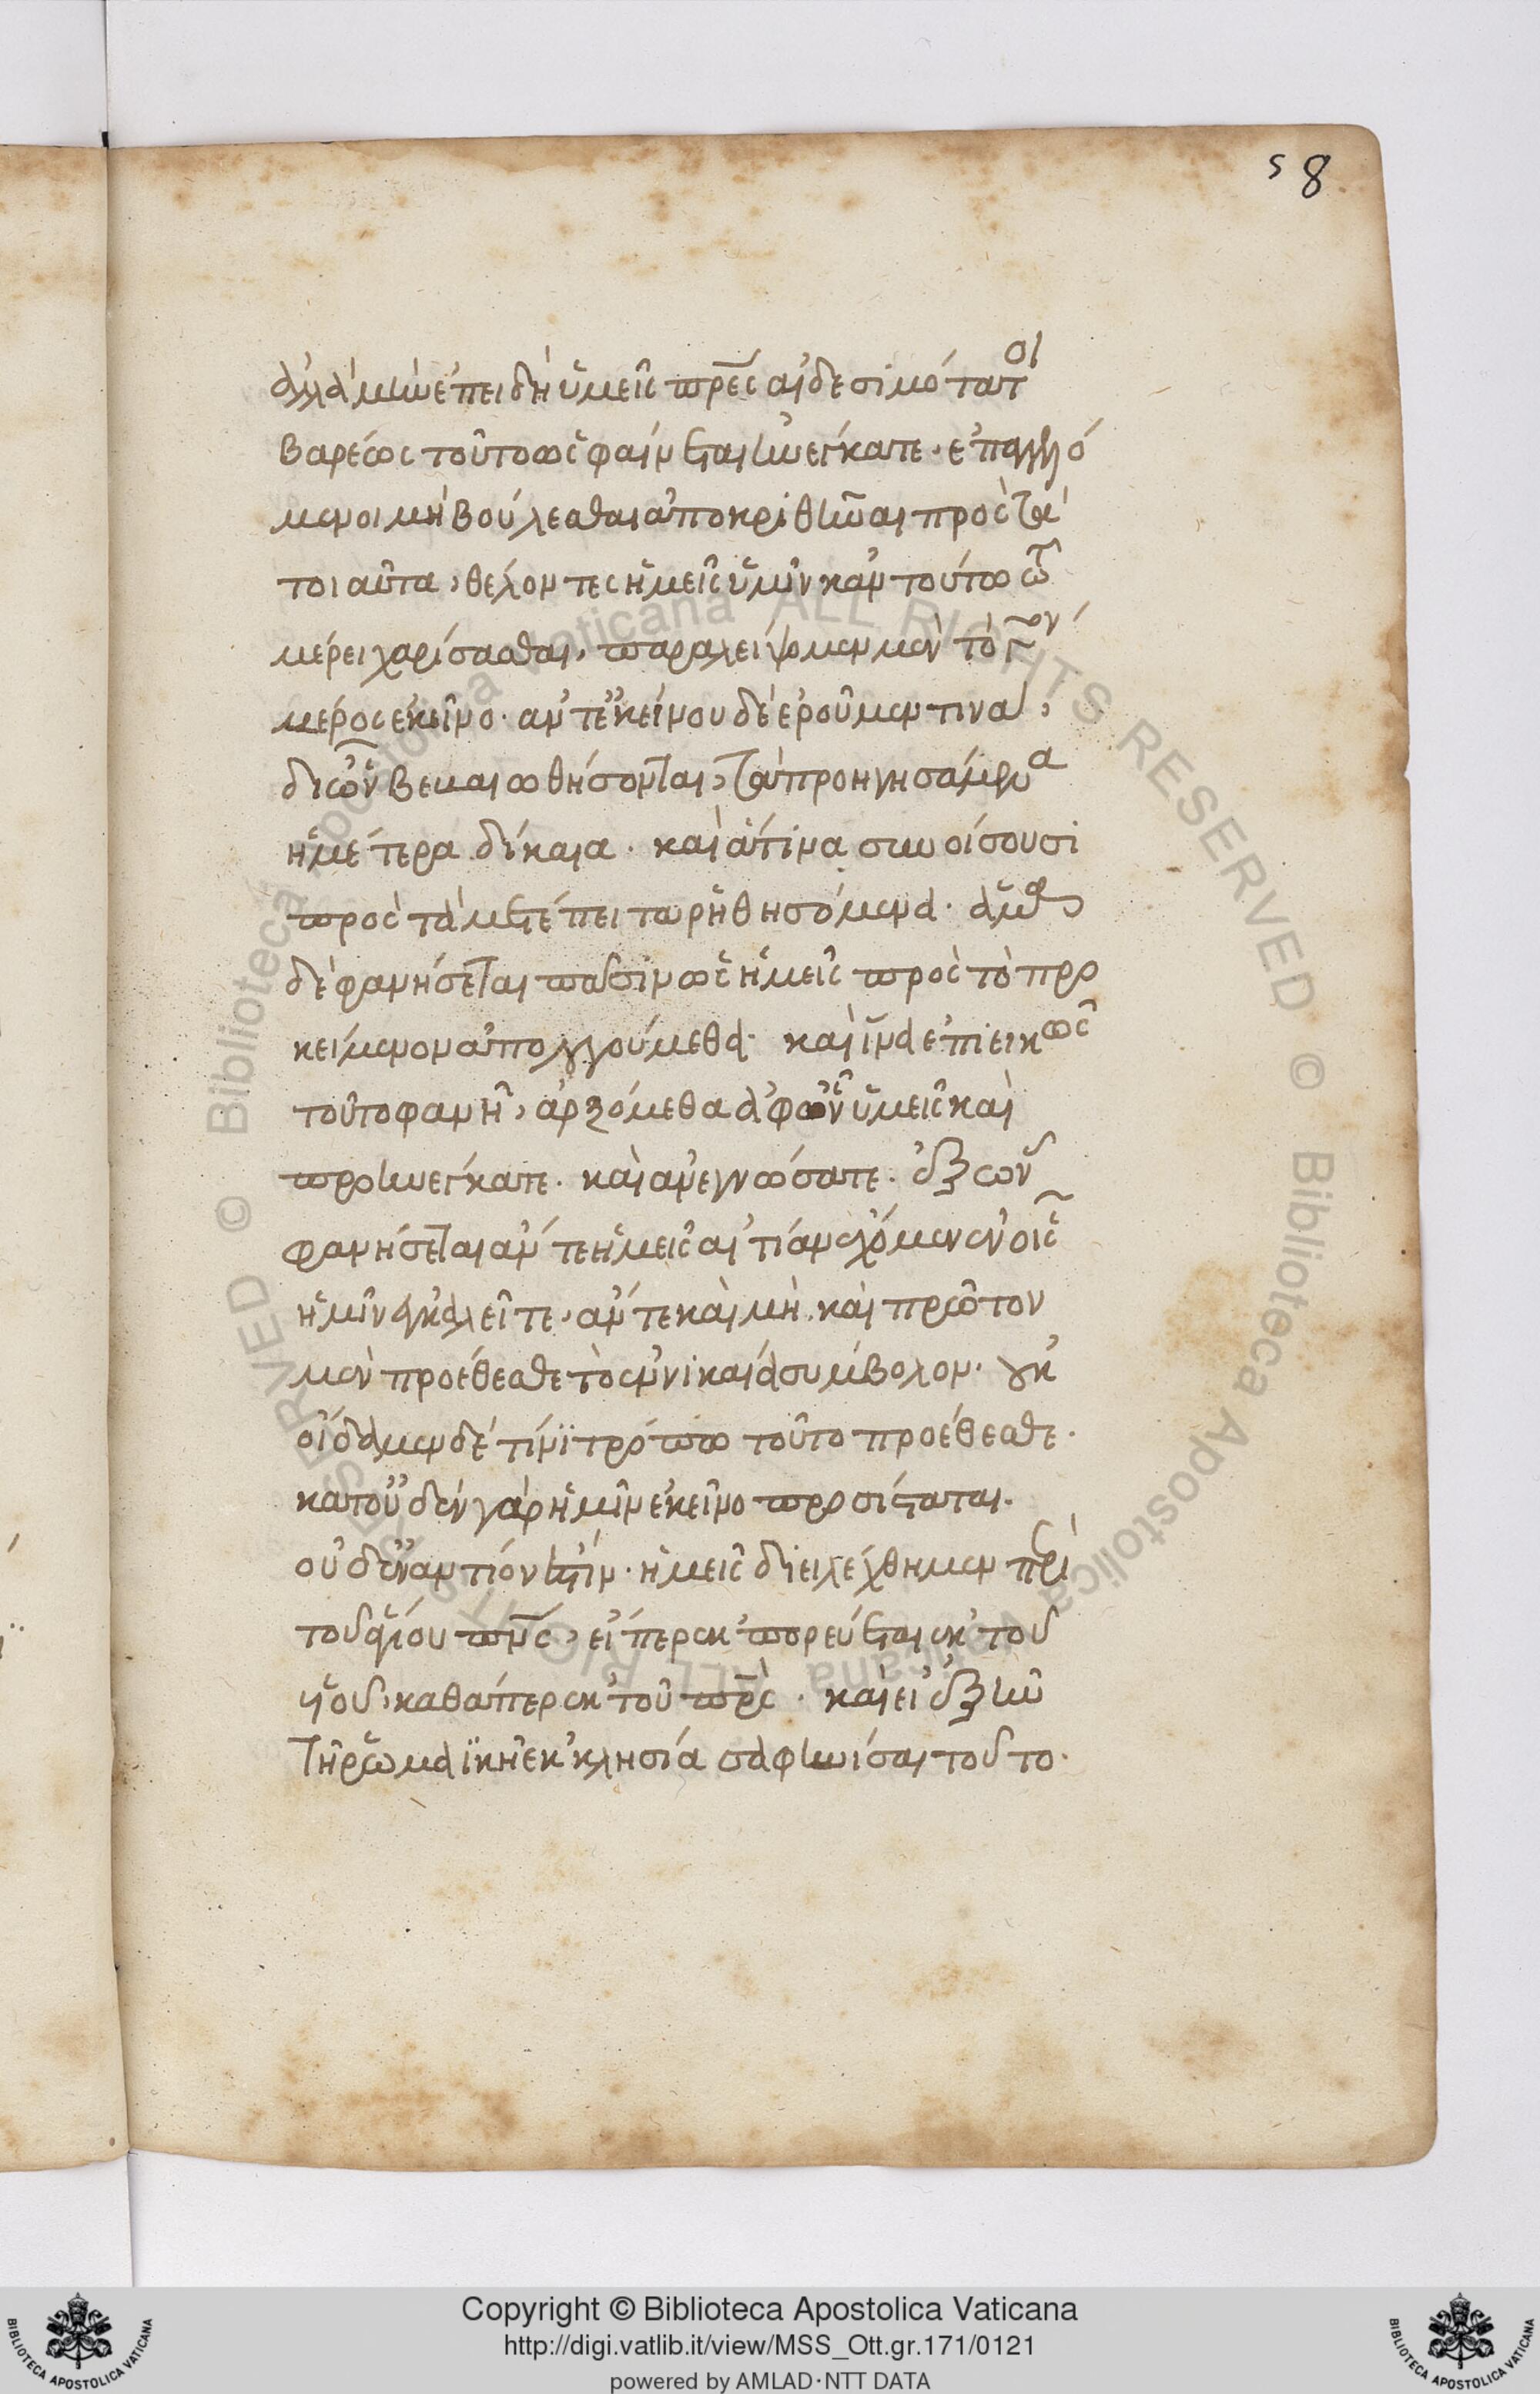 58
ἀλλὰ μὴν ἐπειδὴ ὑμεῖς πρες αἰδεσιμότατοι
βαρέως τοῦτο ὡς φαίνεται ἠνέγκατε· ἐπαγγελλό
μενοι μὴ βούλεσθαι ἀποκριθῆναι πρὸς τὰ
τοιαῦτα, θέλοντες ἡμεῖς ὑμῖν κἀν τούτω τῶ
μέρει χαρίσασθαι, παραλείψομεν μὲν τὸ
μέρος ἐκεῖνο· ἀντ' ἐκείνου δὲ ἐροῦμεν τινὰ,
δι' ὧν βεβαιωθήσονται, τὰ προηγησάμενα
ἡμέτερα δίκαια· καὶ ἅτινα συνοίσουσι
πρὸς τὰ μετέπειτα ῥηθησόμενα·
δὲ φανήσεται πᾶσιν ὡς ἡμεῖς πρὸς τὸ προ
κείμενον ἀπολογούμεθα· καὶ ἵνα ἐπιεικῶς
τοῦτο φανῆ, ἀρξόμεθα ἀφ' ὧν ὑμεῖς καὶ
προηνέγκατε· καὶ ἀνέγνωσατε· ἐξ ὧν
φανήσεται ἄν τε ἡμεῖς αἰτίαν ἔχομεν ἐν οἷς
ἡμῖν ἐγκαλεῖτε, ἄν τε καὶ μὴ. καὶ πρῶτον
μὲν προέθεσθε τὸ ἐν νικαία σύμβολον· οὐκ
οἴδαμεν δὲ τίνι τρόπω τοῦτο προέθεσθε·
κατ' οὐδὲν γὰρ ἡμῖν ἐκεῖνο προσίσταται·
οὐδ' ἐναντίον ἐστίν· ἡμεῖς διειλέχθημεν περὶ
τοῦ ἁγίου πνς, εἴπερ ἐκπορεύεται ἐκ τοῦ
υἱοῦ, καθάπερ ἐκ τοῦ πρς· καὶ εἰ ἐξῆν
τῆ ῥωμαϊκῆ ἐκκλησία σαφηνίσαι τοῦτο·
Copyright © Biblioteca Apostolica Vaticana
http://digi.vatlib.it/view/MSS_Ott.gr.171/0121
powered by AMLAD·NTT DATA